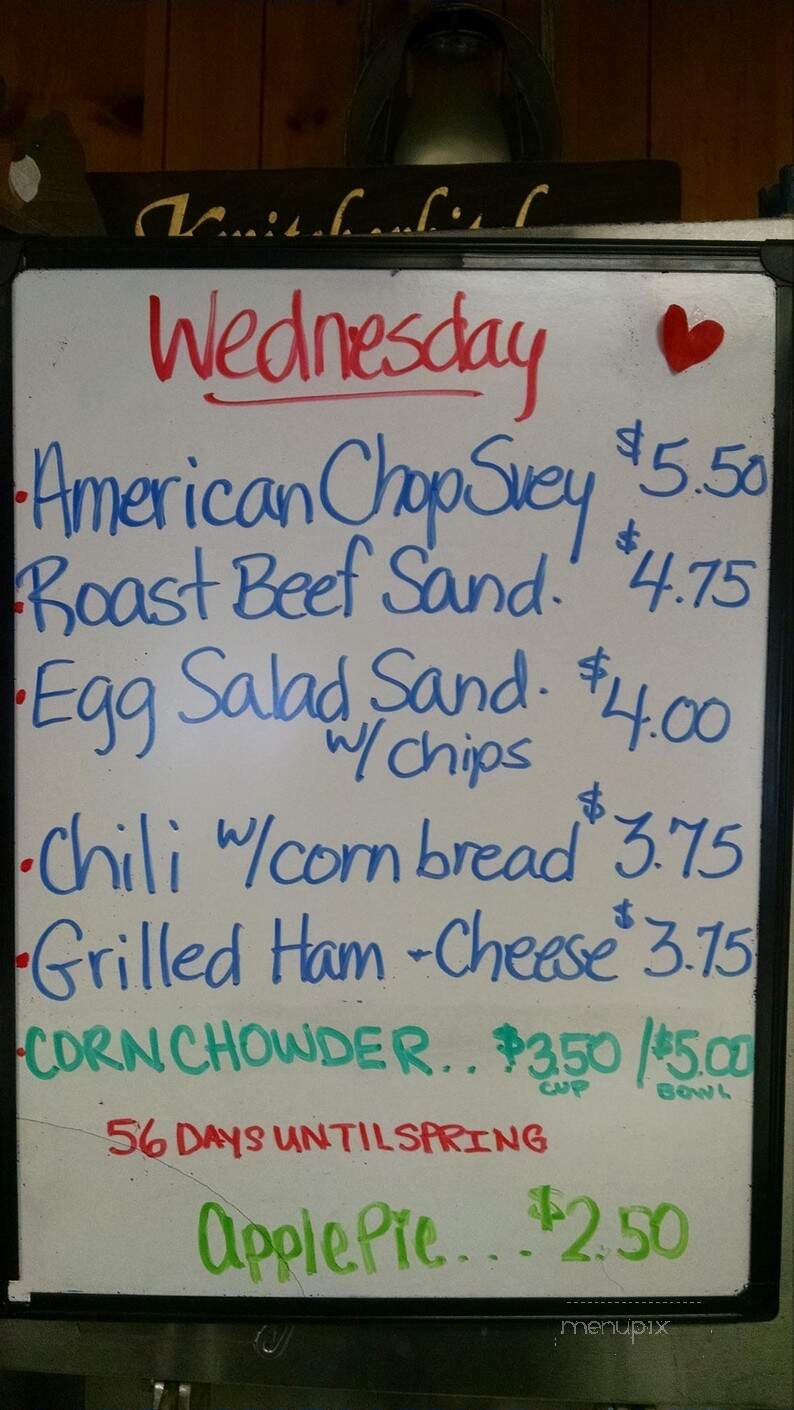 Wednesday
·American Chop Suey $5.50
·Roast Beef Sand. $4.75
·Egg Salad Sand. $4.00
w/ chips
·Chili w/corn bread $3.75
·Grilled Ham + Cheese $3.75
·CORN CHOWDER.. $3.50 / $5.00
CUP BOWL
56 DAYS UNTIL SPRING
Apple Pie... $2.50
menupix